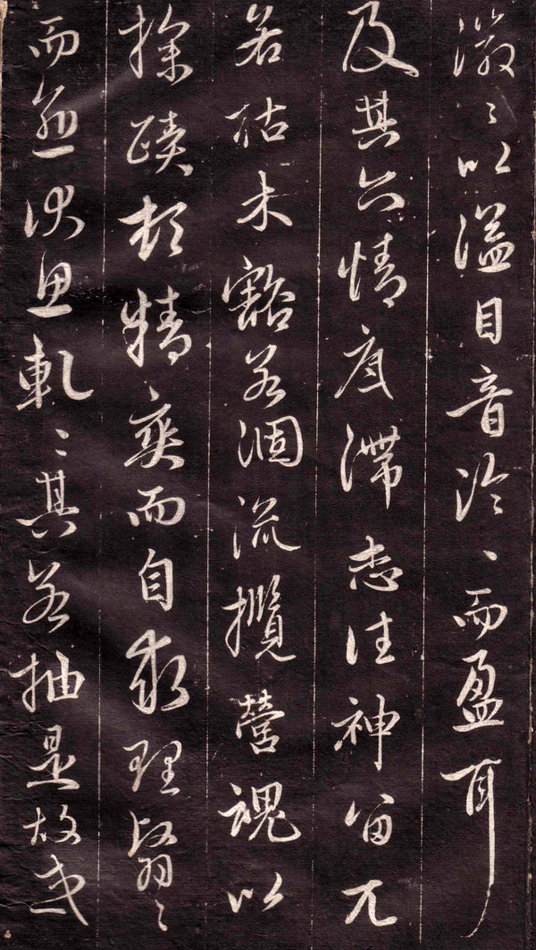 徽〻以溢目音泠〻而盈耳
及其六情底滯志往神留兀
若枯木豁若涸流攬營魂以
探賾頓精爽而自求理翳〻
而愈伏思軋〻其若抽是故或